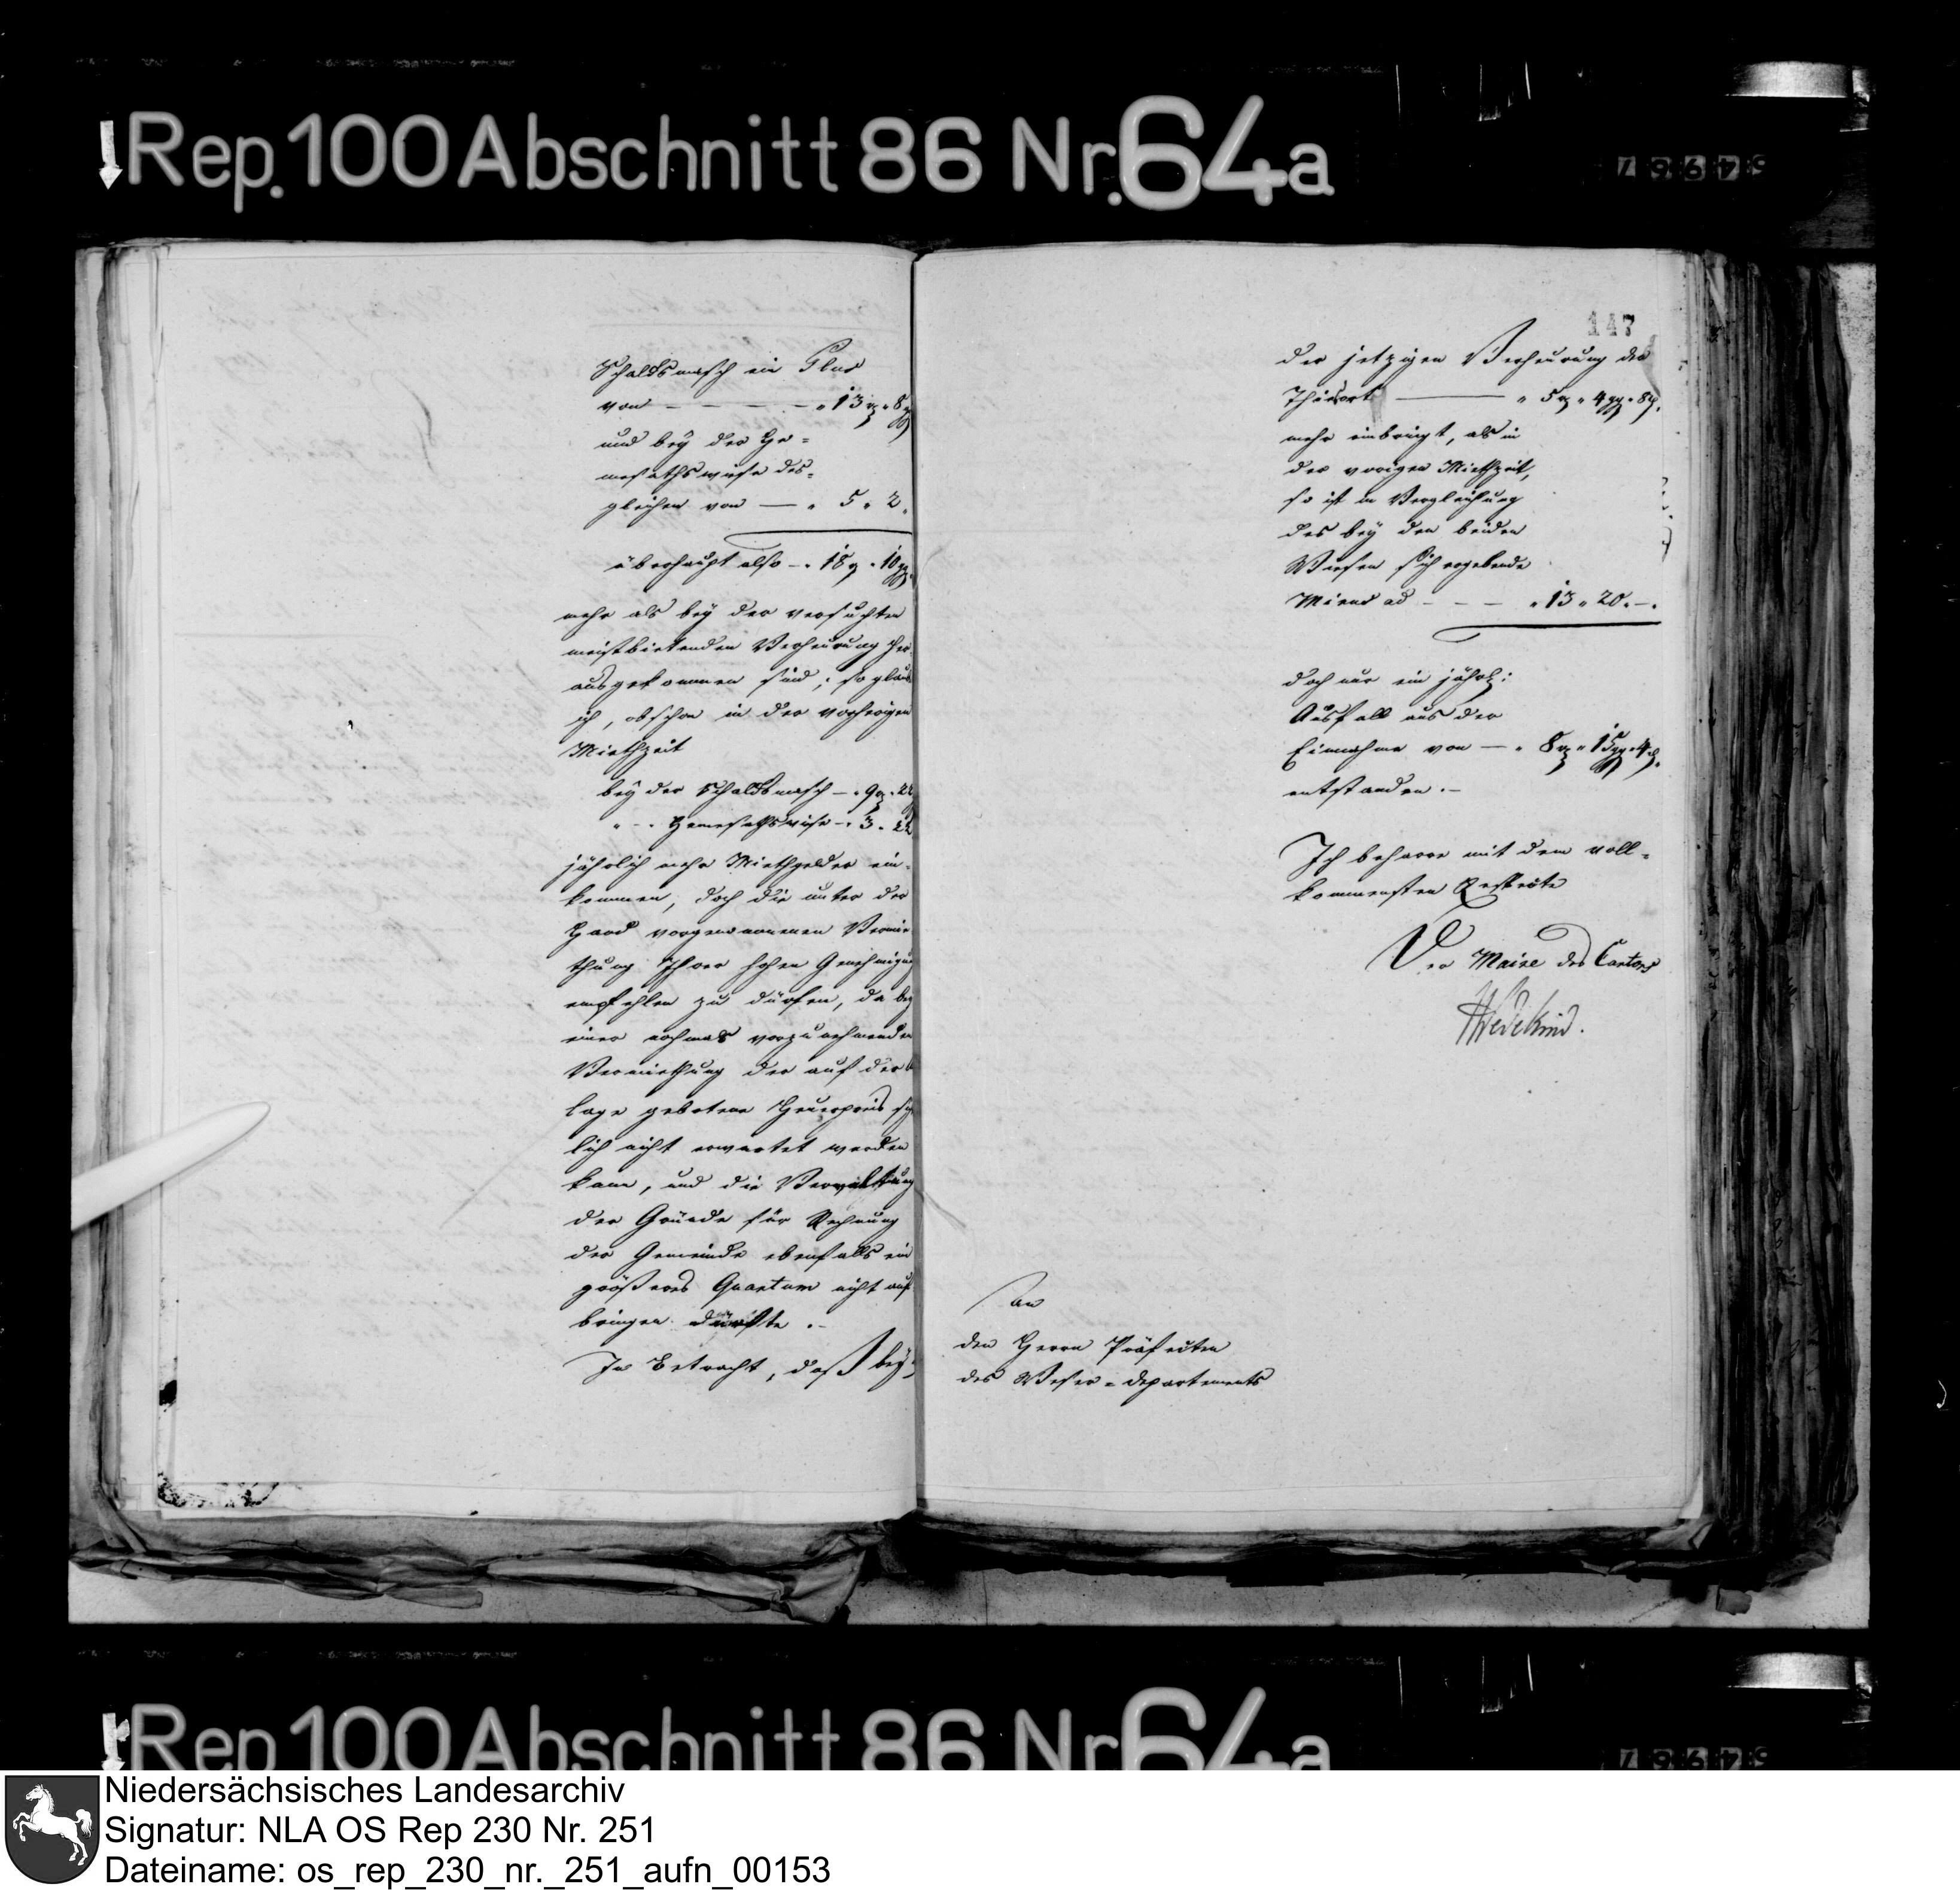 Rep. 100 Abschnitt 86 Nr. 64a
Schaldsmasch ein Plus
von — — — — " 13 rt " 8 gg
und bey der He=
mesathswiese des=
gleichen von — " 5 " 2 "
überhaupt also — " 18 rt " 10 gg
mehr als bey der versuchten
meistbietenden Verheurung her=
ausgekommen sind; so glaub
ich, obschon in der vorherigen
Miethzeit
bey der Schaldsmasch — " 9 rt " 22
" — " Hemesathswiese — " 3 " 22
jährlich mehr Miethgelder ein=
kommen, doch die unter der
Hand vorgenommenen Vermie
thung Ihrer hohen Genehmigung
empfehlen zu dürfen, da bey
einer nochmals vorzunehmenden
Vermiethung der auf der
lage gebotene Heuerpreis
lich nicht erwartet werden
kann, und die Verwaltung
der Gründe für Rechnung
der Gemeinde ebenfalls ein
größeres Quantum nicht auf
bringen dürfte. —
In Betracht, daß bey
147
der jetzigen Verheurung des
— " 5 rt " 4 gg " 8 d.
mehr einbringt, als in
der vorigen Miethzeit,
so ist in Vergleichung
des bey den beiden
Wiesen sich ergebende
Minus ad — — — " 13 " 20 " — .
doch nur ein jährl:
Ausfall aus der
Einnahme von — " 8 rt " 15 gg " 4 d.
entstanden. —
Ich beharre mit dem voll=
kommensten Respecte
Der Maire des Cantons
Wedekind.
An
den Herrn Präfecten
des Weser=departements
Rep. 100 Abschnitt 86 Nr. 64a
Niedersächsisches Landesarchiv
Signatur: NLA OS Rep 230 Nr. 251
Dateiname: os_rep_230_nr._251_aufn_00153